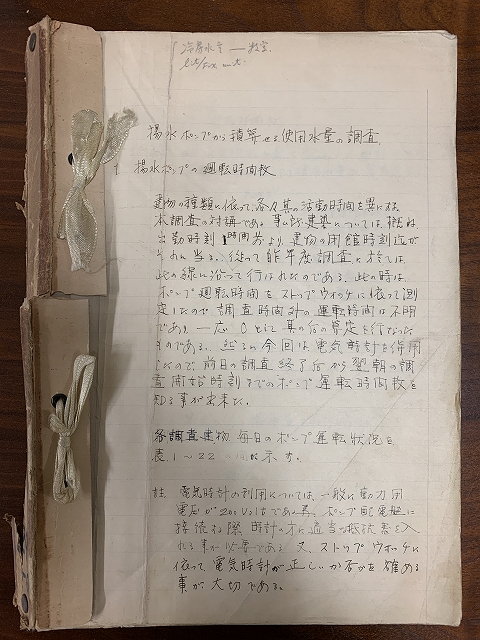 揚水ポンプから積算せる使用水量の調査
1. 揚水ポンプの運転時間数
建物の種類に依って、各々其の活動時間を異にする。
本調査の対稱である事ム所建築については、概ね、
出勤時刻1時間前より、建物の閉館時刻迄が
それに当る。従って昨年度調査に於ては
此の線に沿って行はれたのである。此の時は、
ポンプ運転時間をストップウォッチに依って測
定したので、調査時間外の運転時間は不明
であり一応0として其の后の算定を行なった
ものである。然るに今回は電気時計を併用
したので、前日の調査終了后から翌朝の調
査開始時刻までのポンプ運転時間数を
知る事が出来た。
各調査建物毎日のポンプ運転狀況を
表1〜22に示す。
註 電気時計の利用については、一般に動力用
電圧が200Voltである為、ポンプ配電盤に
接続する際、時計の才に適当な抵抗器を入
れる事が必要である。又、ストップウオッチに
依って電気時計が正しいか否かを確める
事が大切である。